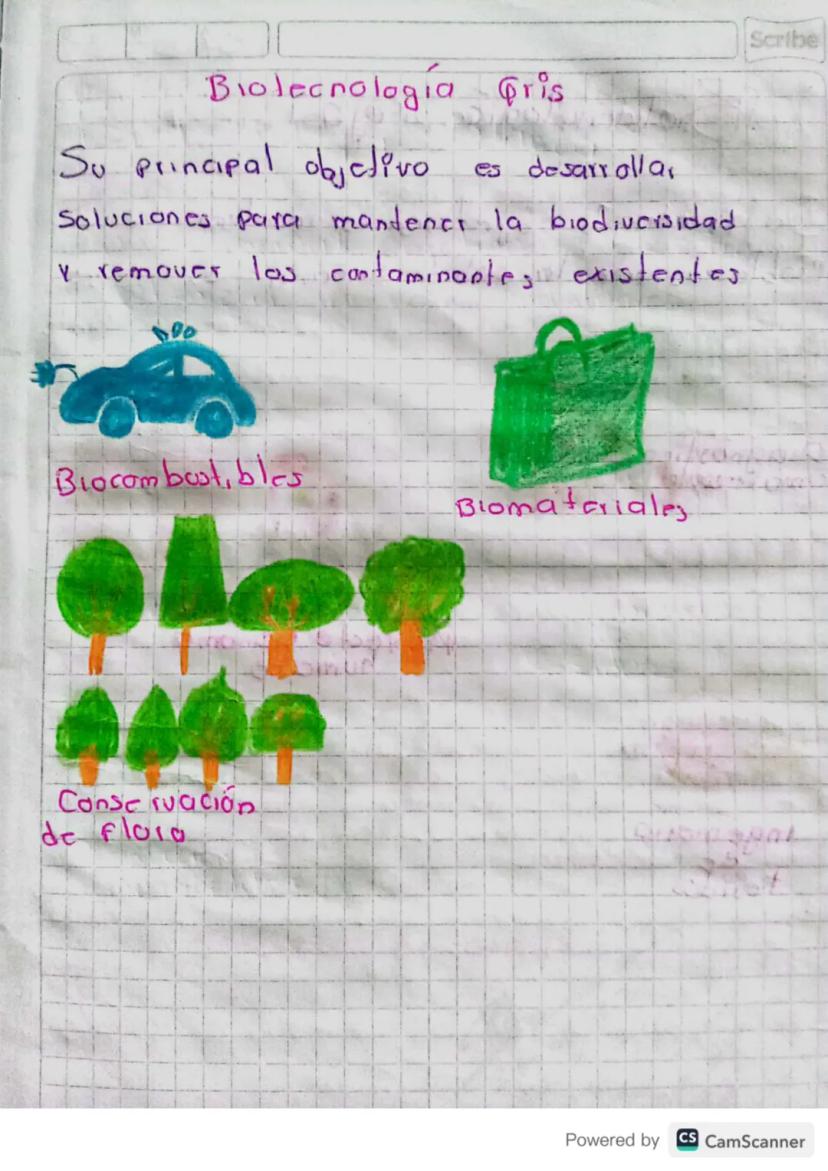 Scribe
Biotecnología Gris
Su principal objetivo es desarrollar
soluciones para mantener la biodiversidad
y remover los contaminantes existentes
Biocombustibles
Biomateriales
Conservación
de flora
Powered by CS CamScanner